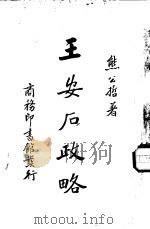 熊公哲著
王安石政略
商務印書館發行
www.todbook.com